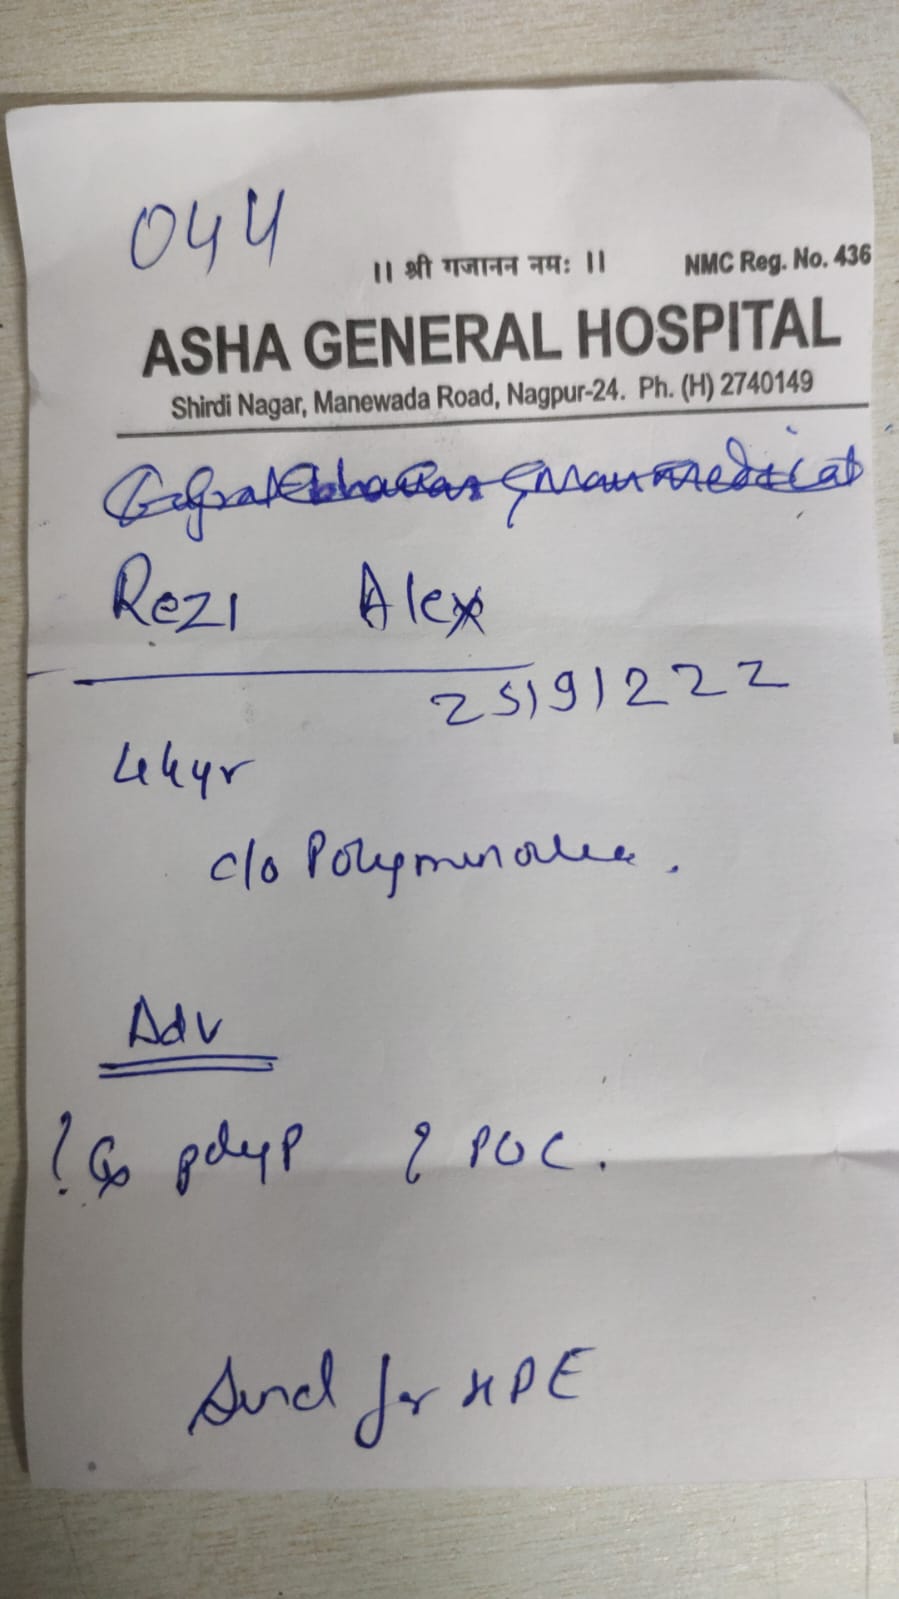 044
|| श्री गजानन नमः ||
NMC Reg. No. 436
ASHA GENERAL HOSPITAL
Shirdi Nagar, Manewada Road, Nagpur-24. Ph. (H) 2740149
Rezi Alex
25191222
44yr
c/o Polymenorrhea.
Adv
? Cx polyp ? POC.
Send for HPE